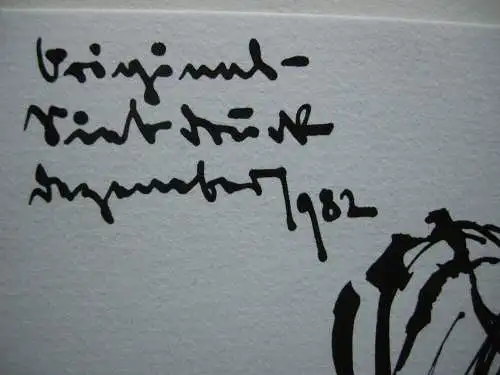 Original-
Siebdruck
dezember 1982